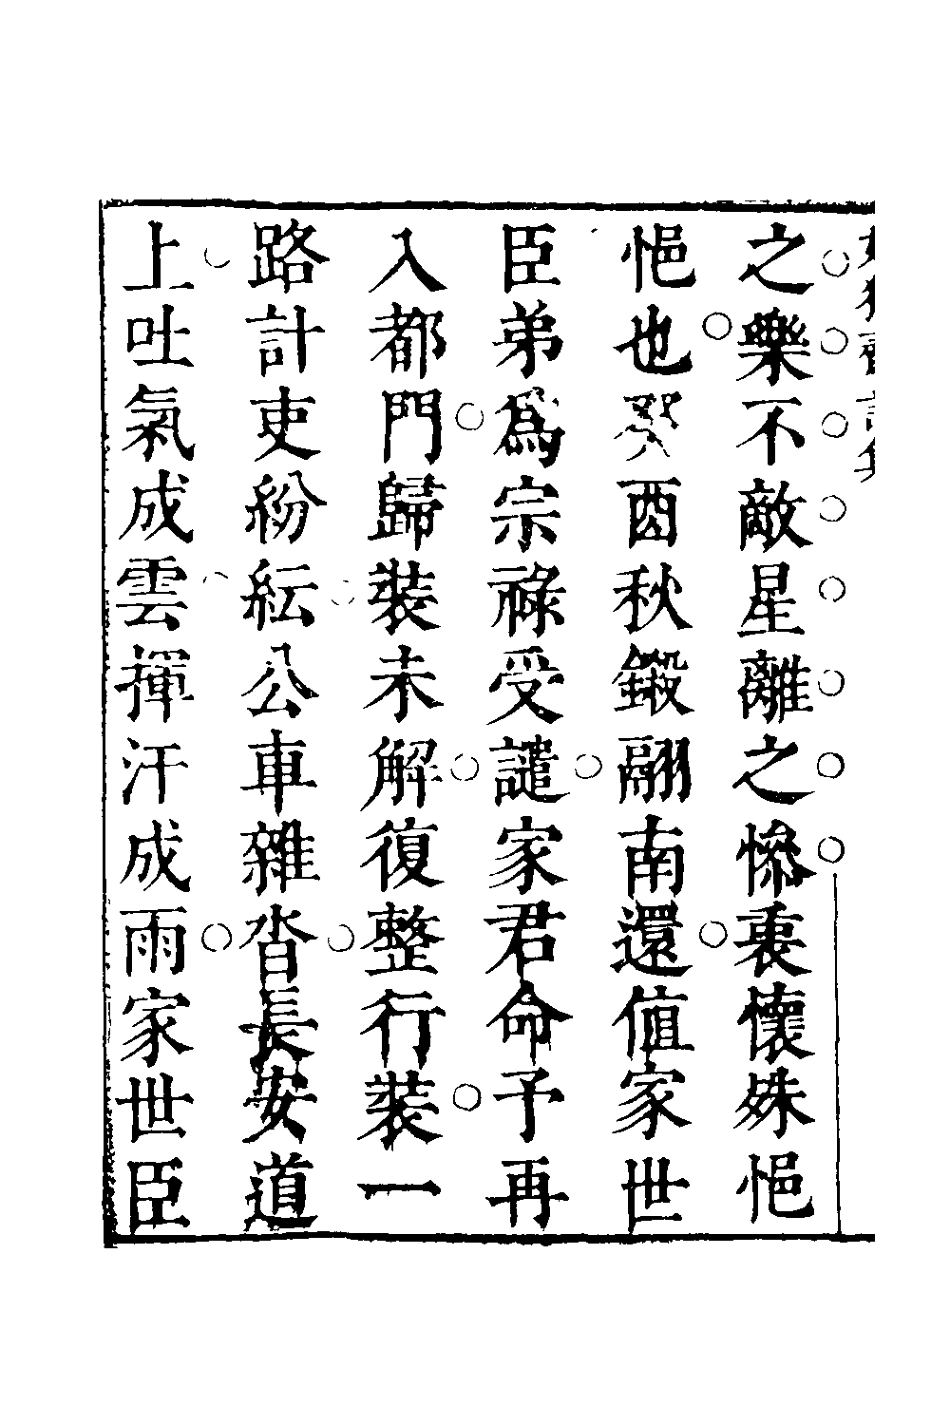 之樂不敵星離之慘衷懷殊悒
悒也癸酉秋鎩翮南還値家世
臣弟爲宗祿受譴家君命予再
入都門歸裝未解復整行裝一
路計吏紛紜公車雜沓長安道
上吐氣成雲揮汗成雨家世臣